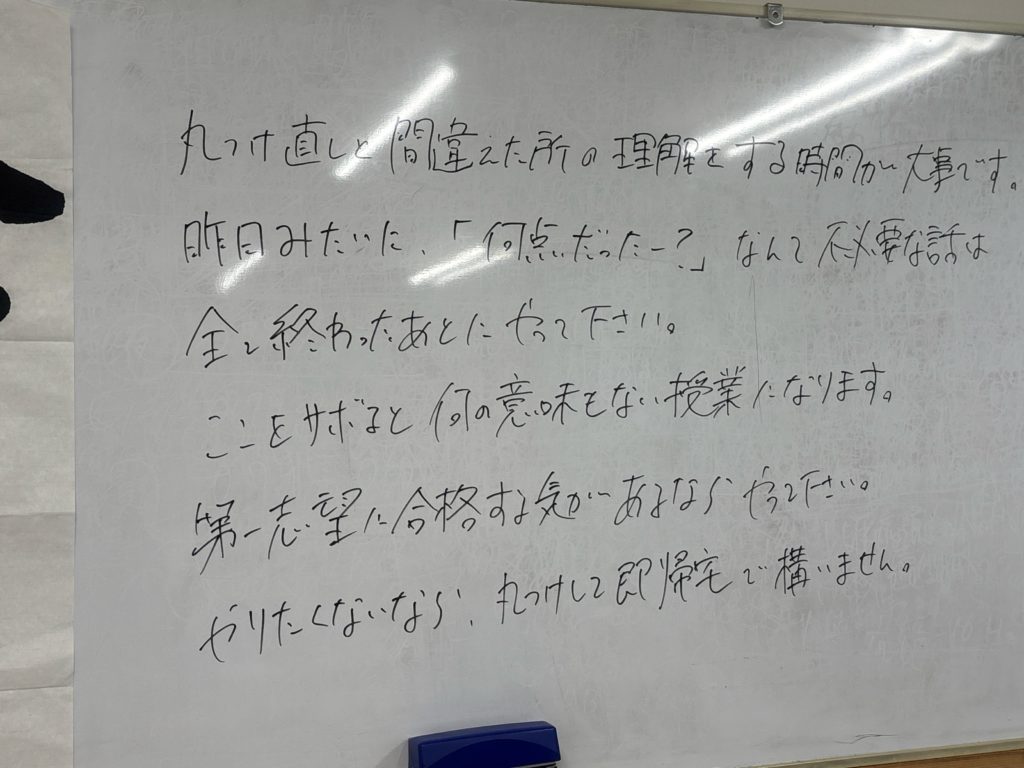 丸つけ直しと間違えた所の理解をする時間が大事です。
昨日みたいに、「何点だったー?」なんて不必要な話は
全て終わったあとにやって下さい。
ここをサボると何の意味もない授業になります。
第一志望に合格する気があるならやって下さい。
やりたくないなら、丸つけして即帰宅で構いません。